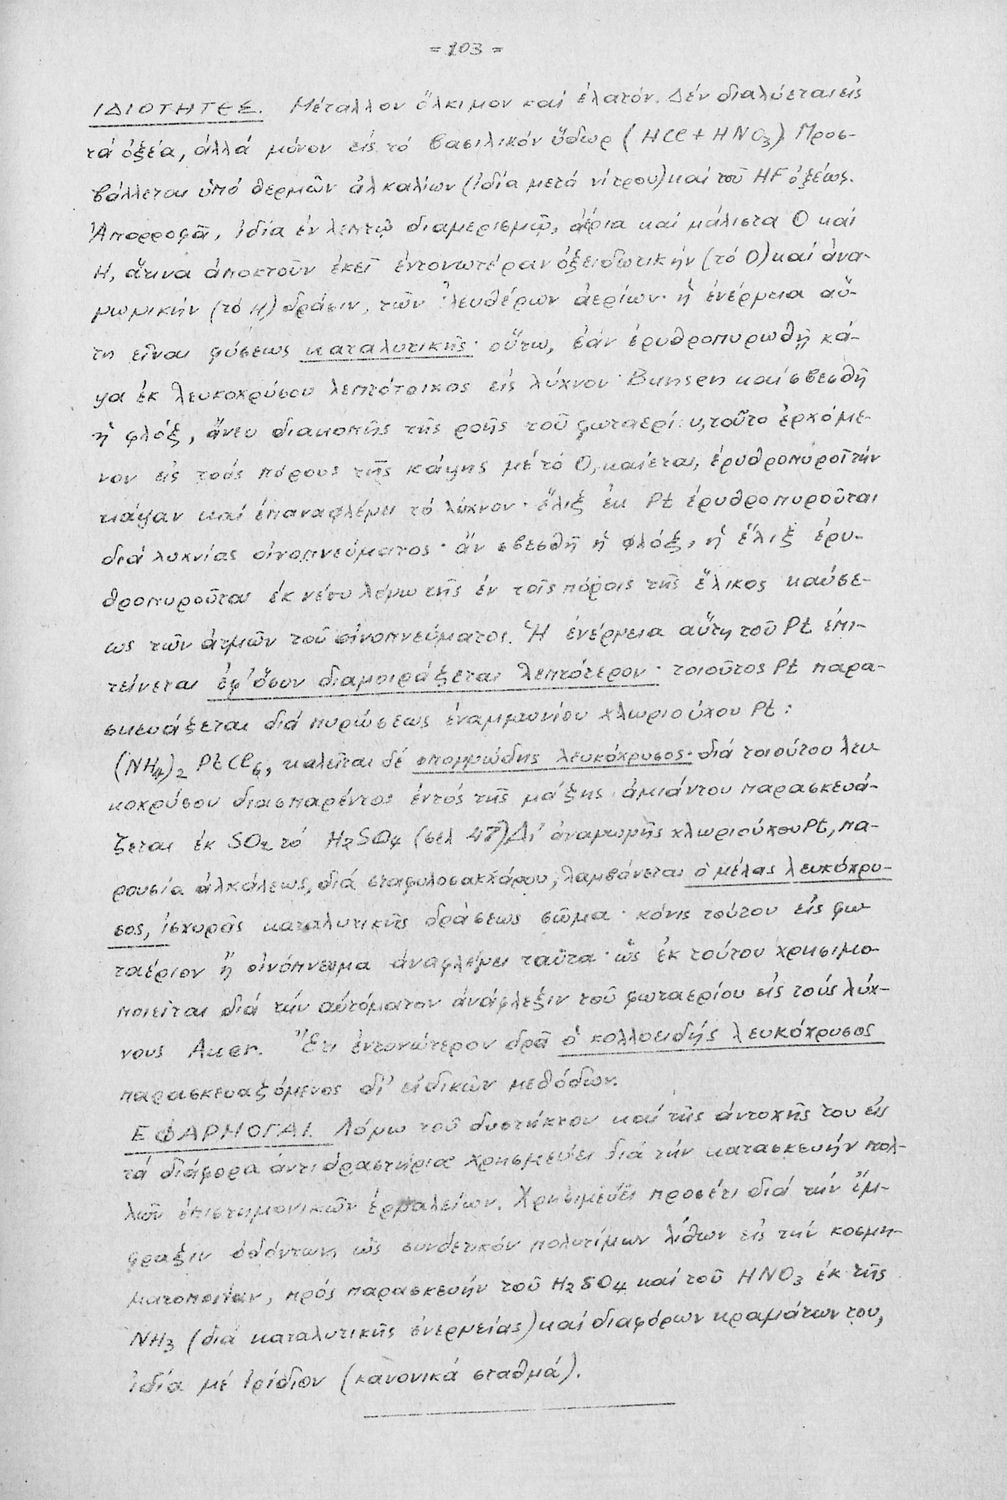 = 103 =
ΙΔΙΟΤΗΤΕΣ. Μέταλλον ὄλκιμον καί ἐλατόν. Δέν διαλύεται εἰς
τά ὀξέα, ἀλλά μόνον εἰς τό βασιλικόν ὕδωρ (HCl + HNO3) Προσ-
βάλλεται ὑπό θερμῶν ἀλκαλίων (ἰδία μετά νίτρου) καί τοῦ HF ὀξέως.
Ἀπορροφᾶ, ἰδία ἐν λεπτῷ διαμερισμῷ, ἀέρια καί μάλιστα O καί
H, ἅτινα ἀποκτοῦν ἐκεῖ ἐντονωτέραν ὀξειδωτικήν (τό O) καί ἀνα-
γωγικήν (τό H) δρᾶσιν, τῶν ἐλευθέρων ἀερίων· ἡ ἐνέργεια αὕ-
τη εἶναι φύσεως καταλυτικῆς· οὕτω, ἐάν ἐρυθροπυρωθῇ κά-
ψα ἐκ λευκοχρύσου λεπτότοιχος εἰς λύχνον Bunsen καί σβεσθῇ
ἡ φλόξ, ἄνευ διακοπῆς τῆς ροῆς τοῦ φωταερίου, τοῦτο ἐρχόμε-
νον εἰς τούς πόρους τῆς κάψης μέ τό O, καίεται, ἐρυθροπυροῖ τήν
κάψαν καί ἐπαναφλέγει τό λύχνον· ἕλιξ ἐκ Pt ἐρυθροπυροῦται
διά λυχνίας οἰνοπνεύματος· ἄν σβεσθῇ ἡ φλόξ, ἡ ἕλιξ ἐρυ-
θροπυροῦται ἐκ νέου λόγω τῆς ἐν τοῖς πόροις τῆς ἕλικος καύσε-
ως τῶν ἀτμῶν τοῦ οἰνοπνεύματος. Ἡ ἐνέργεια αὕτη τοῦ Pt ἐπι-
τείνεται ἐφ' ὅσον διαμοιράζεται λεπτότερον· τοιοῦτος Pt παρα-
σκευάζεται διά πυρώσεως ἐναμμωνίου χλωριούχου Pt:
(NH4)2 PtCl6, καλεῖται δέ σπογγώδης λευκόχρυσος· διά τοιούτου λευ-
κοχρύσου διασπαρέντος ἐντός τῆς μάζης ἀμιάντου παρασκευά-
ζεται ἐκ SO2 τό H2SO4 (σελ 47) Δι' ἀναγωγῆς χλωριούχου Pt, πα-
ρουσίᾳ ἀλκάλεως, διά σταφυλοσακχάρου, λαμβάνεται ὁ μέλας λευκόχρυ-
σος, ἰσχυρᾶς καταλυτικῆς δράσεως σῶμα· κόνις τούτου εἰς φω-
ταέριον ἤ οἰνόπνευμα ἀναφλέγει ταῦτα· ὡς ἐκ τούτου χρησιμο-
ποιεῖται διά τήν αὐτόματον ἀνάφλεξιν τοῦ φωταερίου εἰς τούς λύχ-
νους Auer. Ἔτι ἐντονώτερον δρᾶ ὁ κολλοειδής λευκόχρυσος
παρασκευαζόμενος δι' εἰδικῶν μεθόδων.
ΕΦΑΡΜΟΓΑΙ. Λόγω τοῦ δυστήκτου καί τῆς ἀντοχῆς του εἰς
τά διάφορα ἀντιδραστήρια χρησιμεύει διά τήν κατασκευήν πολ-
λῶν ἐπιστημονικῶν ἐργαλείων. Χρησιμεύει προσέτι διά τήν ἔμ-
φραξιν ὀδόντων, ὡς συνδετικόν πολυτίμων λίθων εἰς τήν κοσμη-
ματοποιΐαν, πρός παρασκευήν τοῦ H2SO4 καί τοῦ HNO3 ἐκ τῆς
NH3 (διά καταλυτικῆς ἐνεργείας) καί διαφόρων κραμάτων του,
ἰδία μέ ἰρίδιον (κανονικά σταθμά).